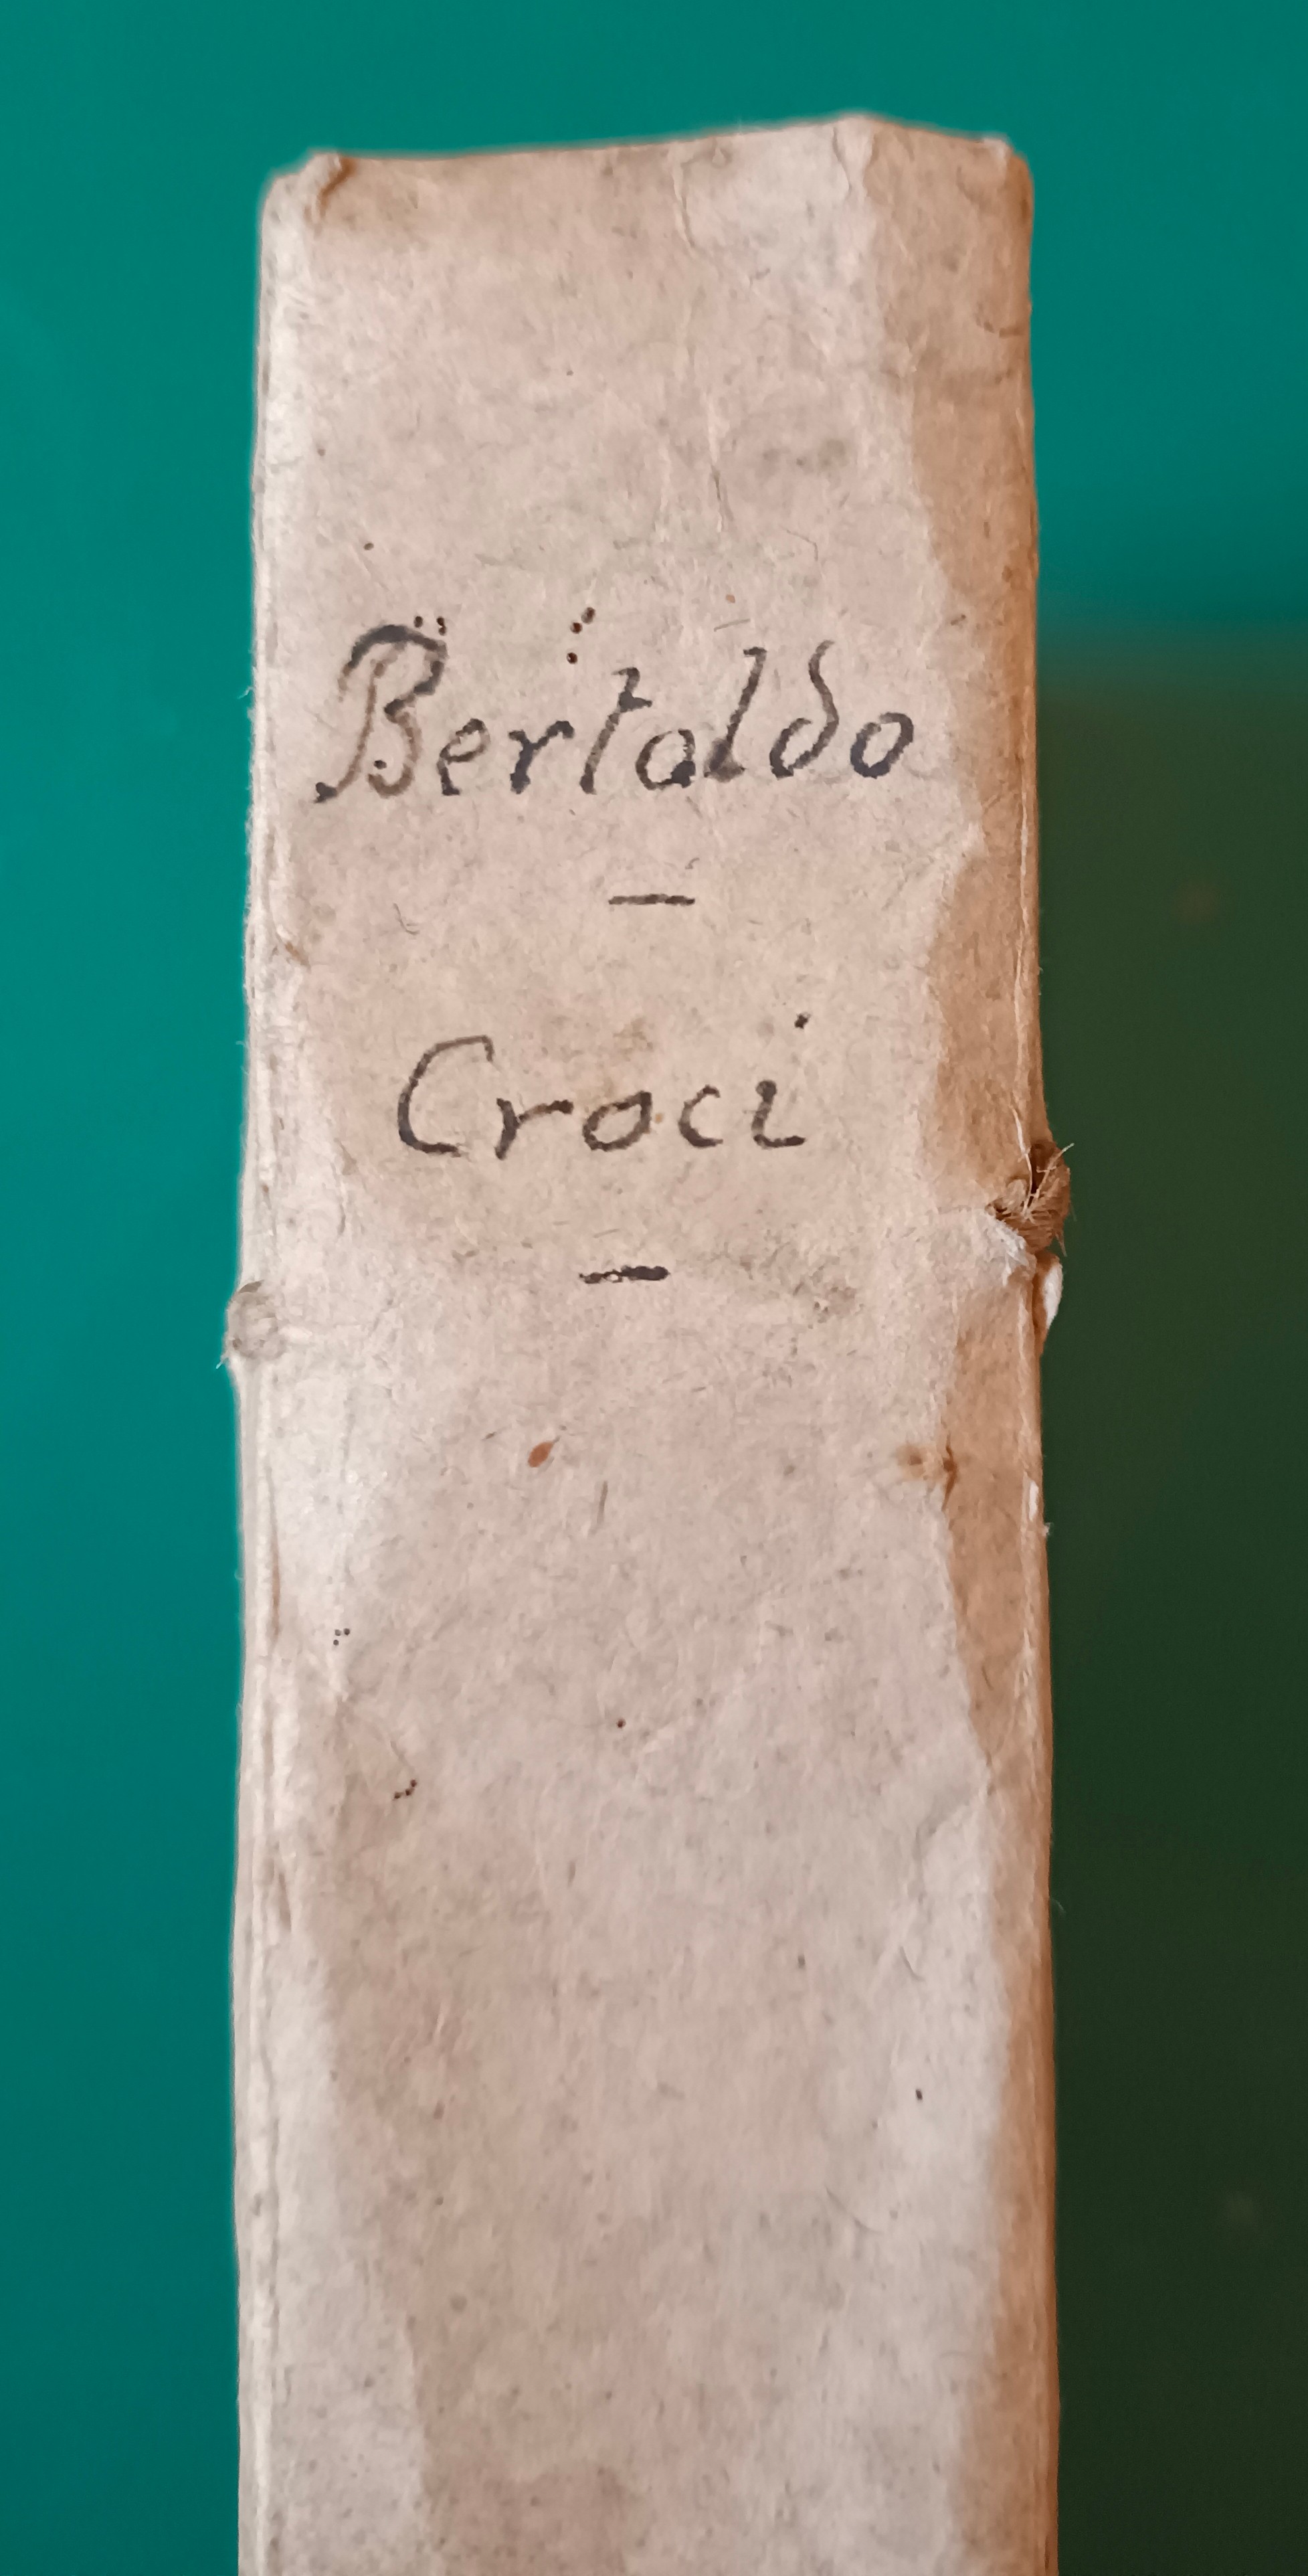 Bertaldo
—
Croci
—